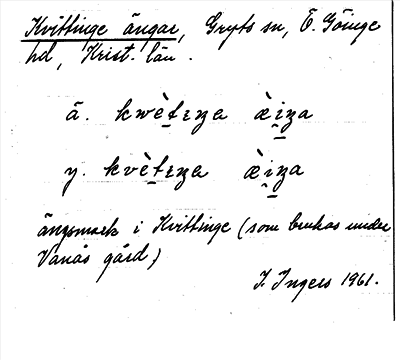 Kvittinge ängar, Gryts sn, Ö. Göinge
hd, Krist. län.
ä. kwètɪŋa æ̀iŋa
y. kvètɪŋa æ̀iŋa
ängsmark i Kvittinge (som brukas under
Vanås gård)
I. Ingers 1961.